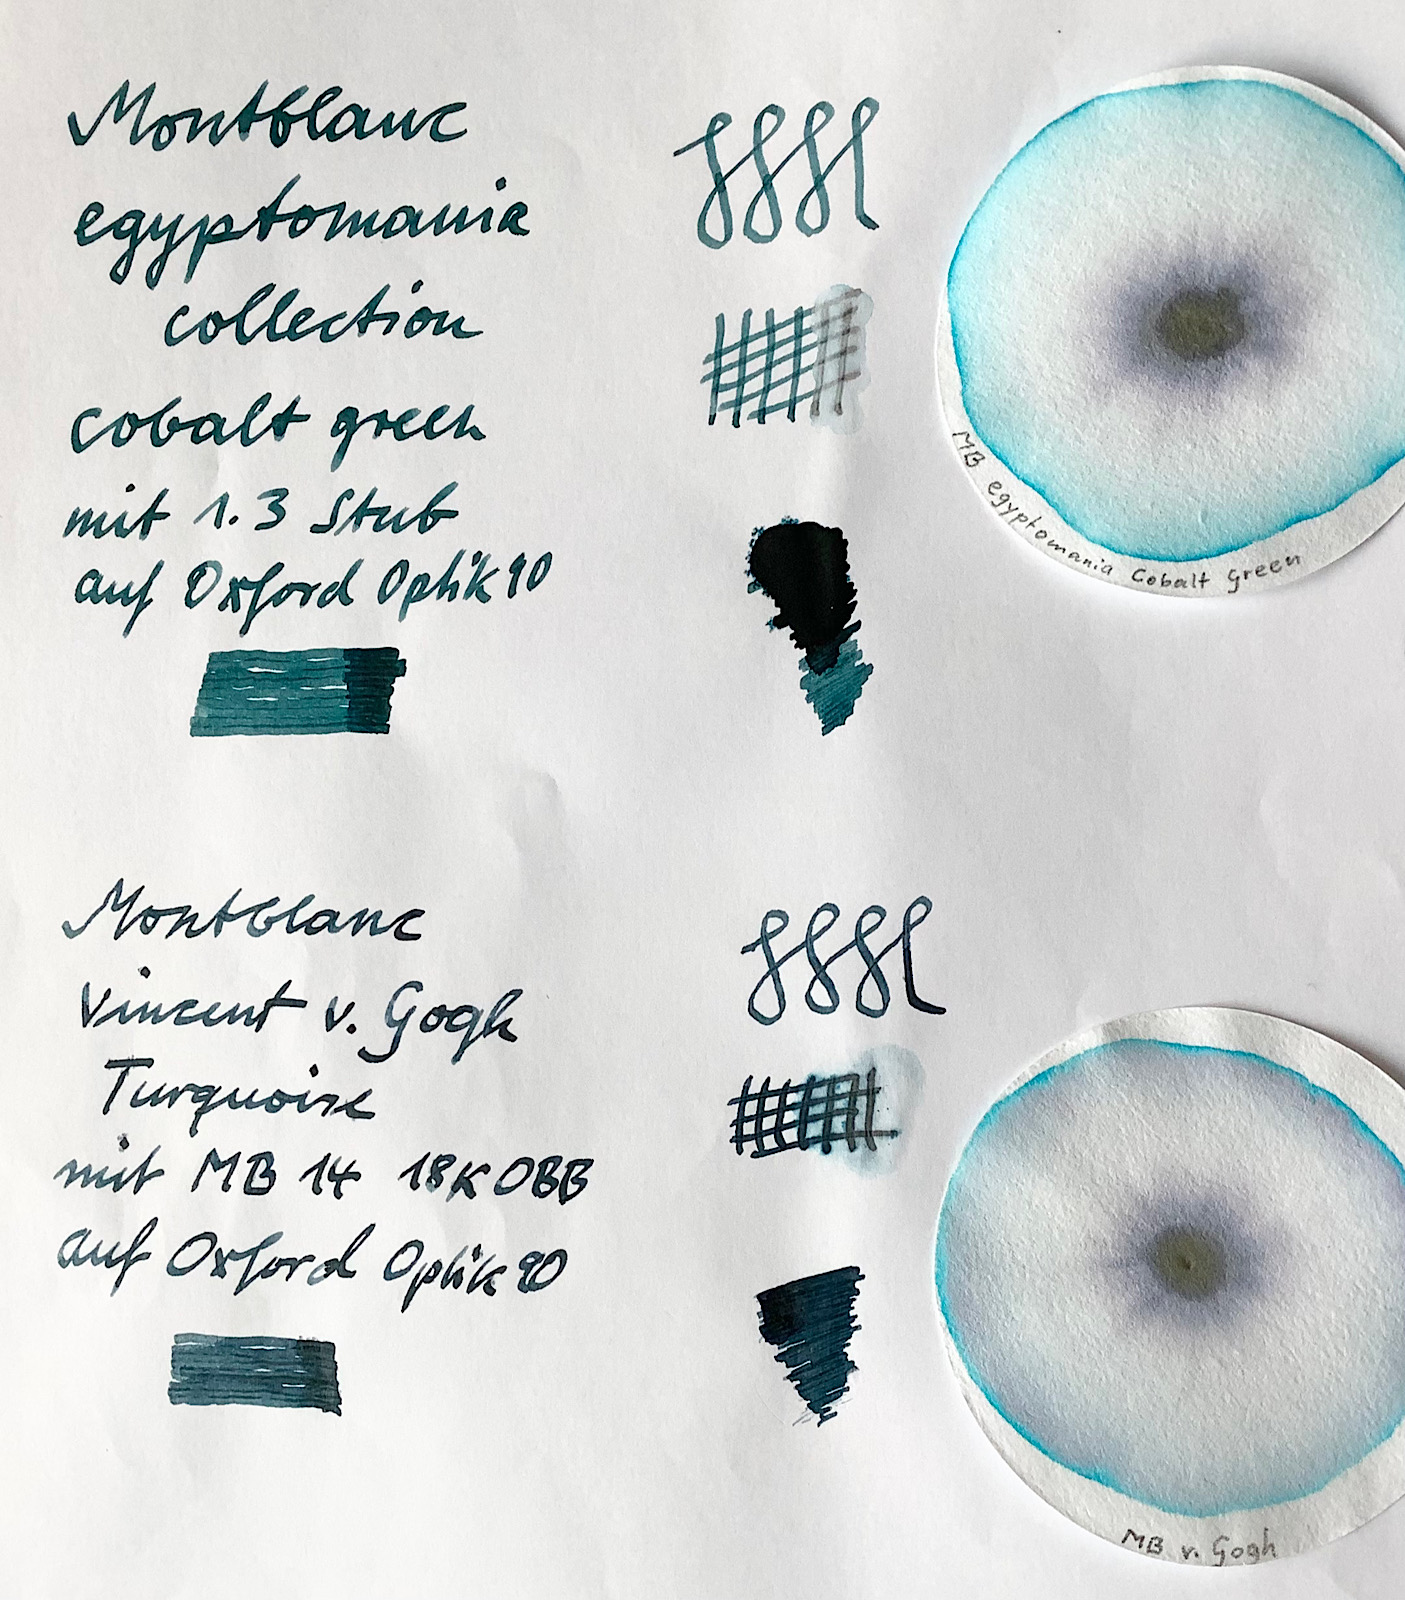 Montblanc
egyptomania
collection
cobalt green
mit 1.3 Stub
auf Oxford Optik 90
MB egyptomania Cobalt Green
Montblanc
Vincent v. Gogh
Turquoise
mit MB 14 18K OBB
auf Oxford Optik 90
MB v. Gogh